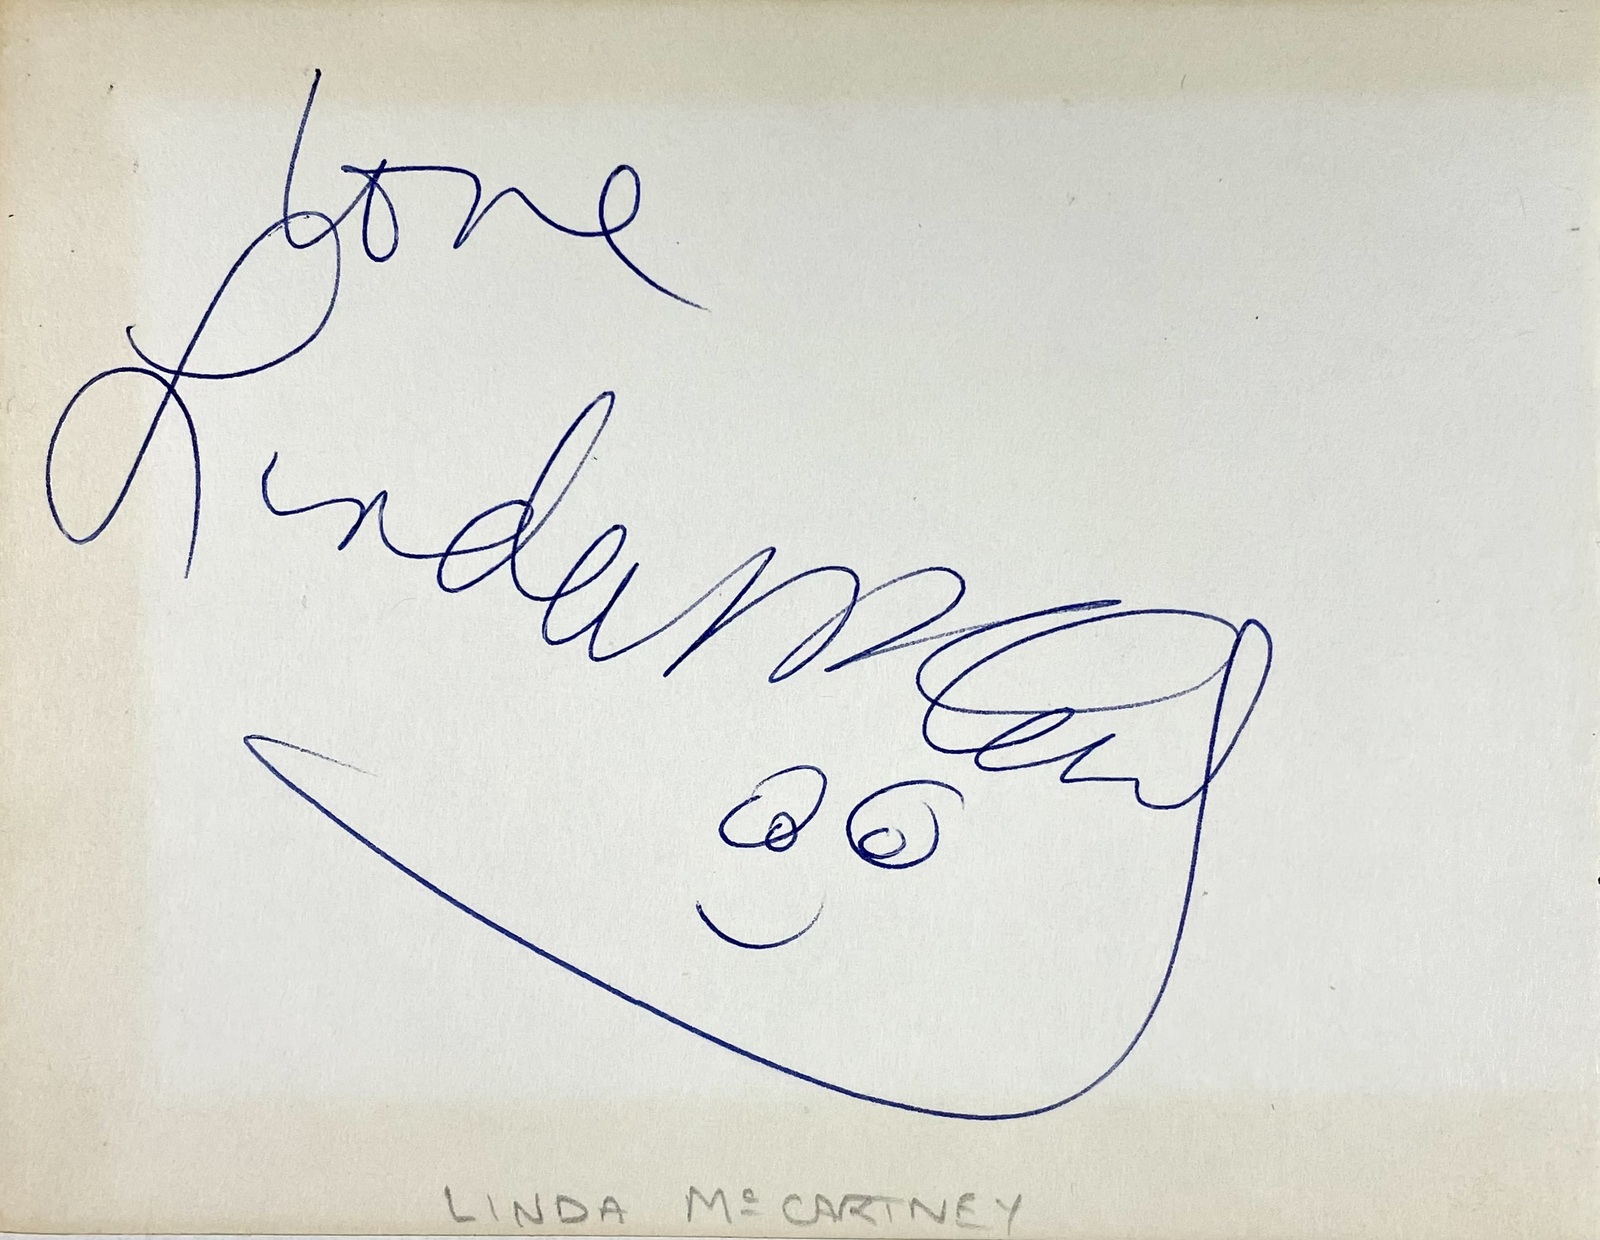 love
Linda McCartney
LINDA McCARTNEY